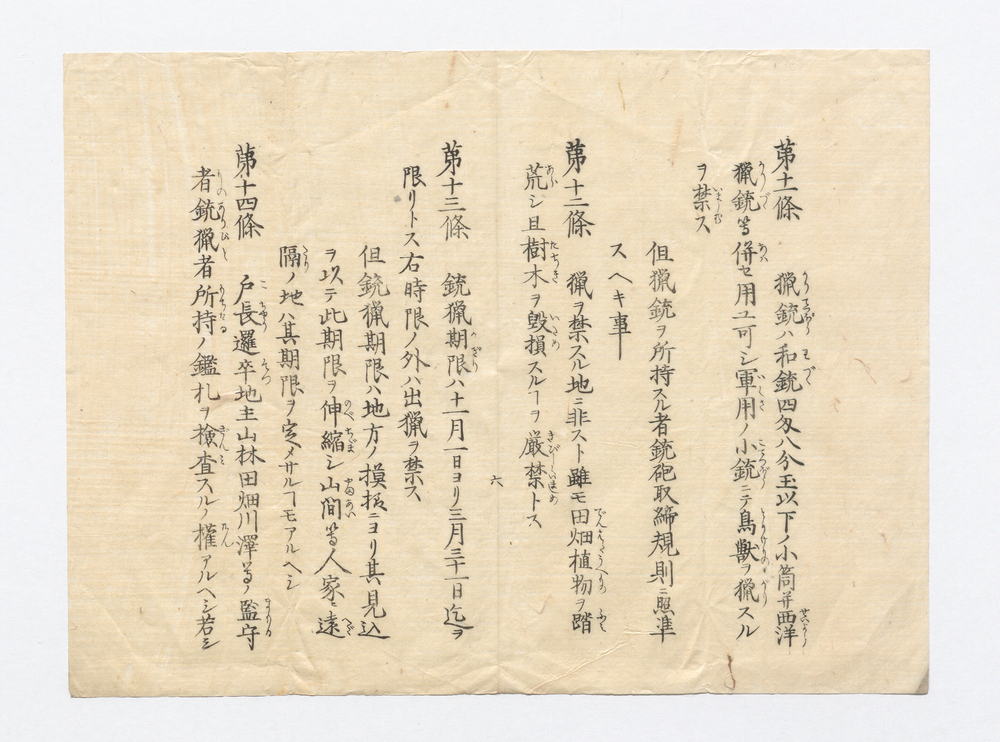 第十一條　猟銃ハ和銃四匁八分玉以下ノ小筒幷西洋
猟銃等併セ用ユ可シ軍用ノ小銃ニテ鳥獣ヲ猟スル
ヲ禁ス
但猟銃ヲ所持スル者銃砲取締規則ニ照準
スヘキ事
第十二條　猟ヲ禁スル地ニ非スト雖モ田畑植物ヲ踏
荒シ且樹木ヲ毀損スルヿヲ厳禁トス
六
第十三條　銃猟期限ハ十一月一日ヨリ三月三十一日迄ヲ
限リトス右時限ノ外ハ出猟ヲ禁ス
但銃猟期限ハ地方ノ摸様ニヨリ其見込
ヲ以テ此期限ヲ伸縮シ山間等人家ニ遠
隔ノ地ハ其期限ヲ定メサルヿモアルヘシ
第十四條　戸長邏卒地主山林田畑川澤等ノ監守
者銃猟者所持ノ鑑札ヲ検査スルノ權アルヘシ若シ